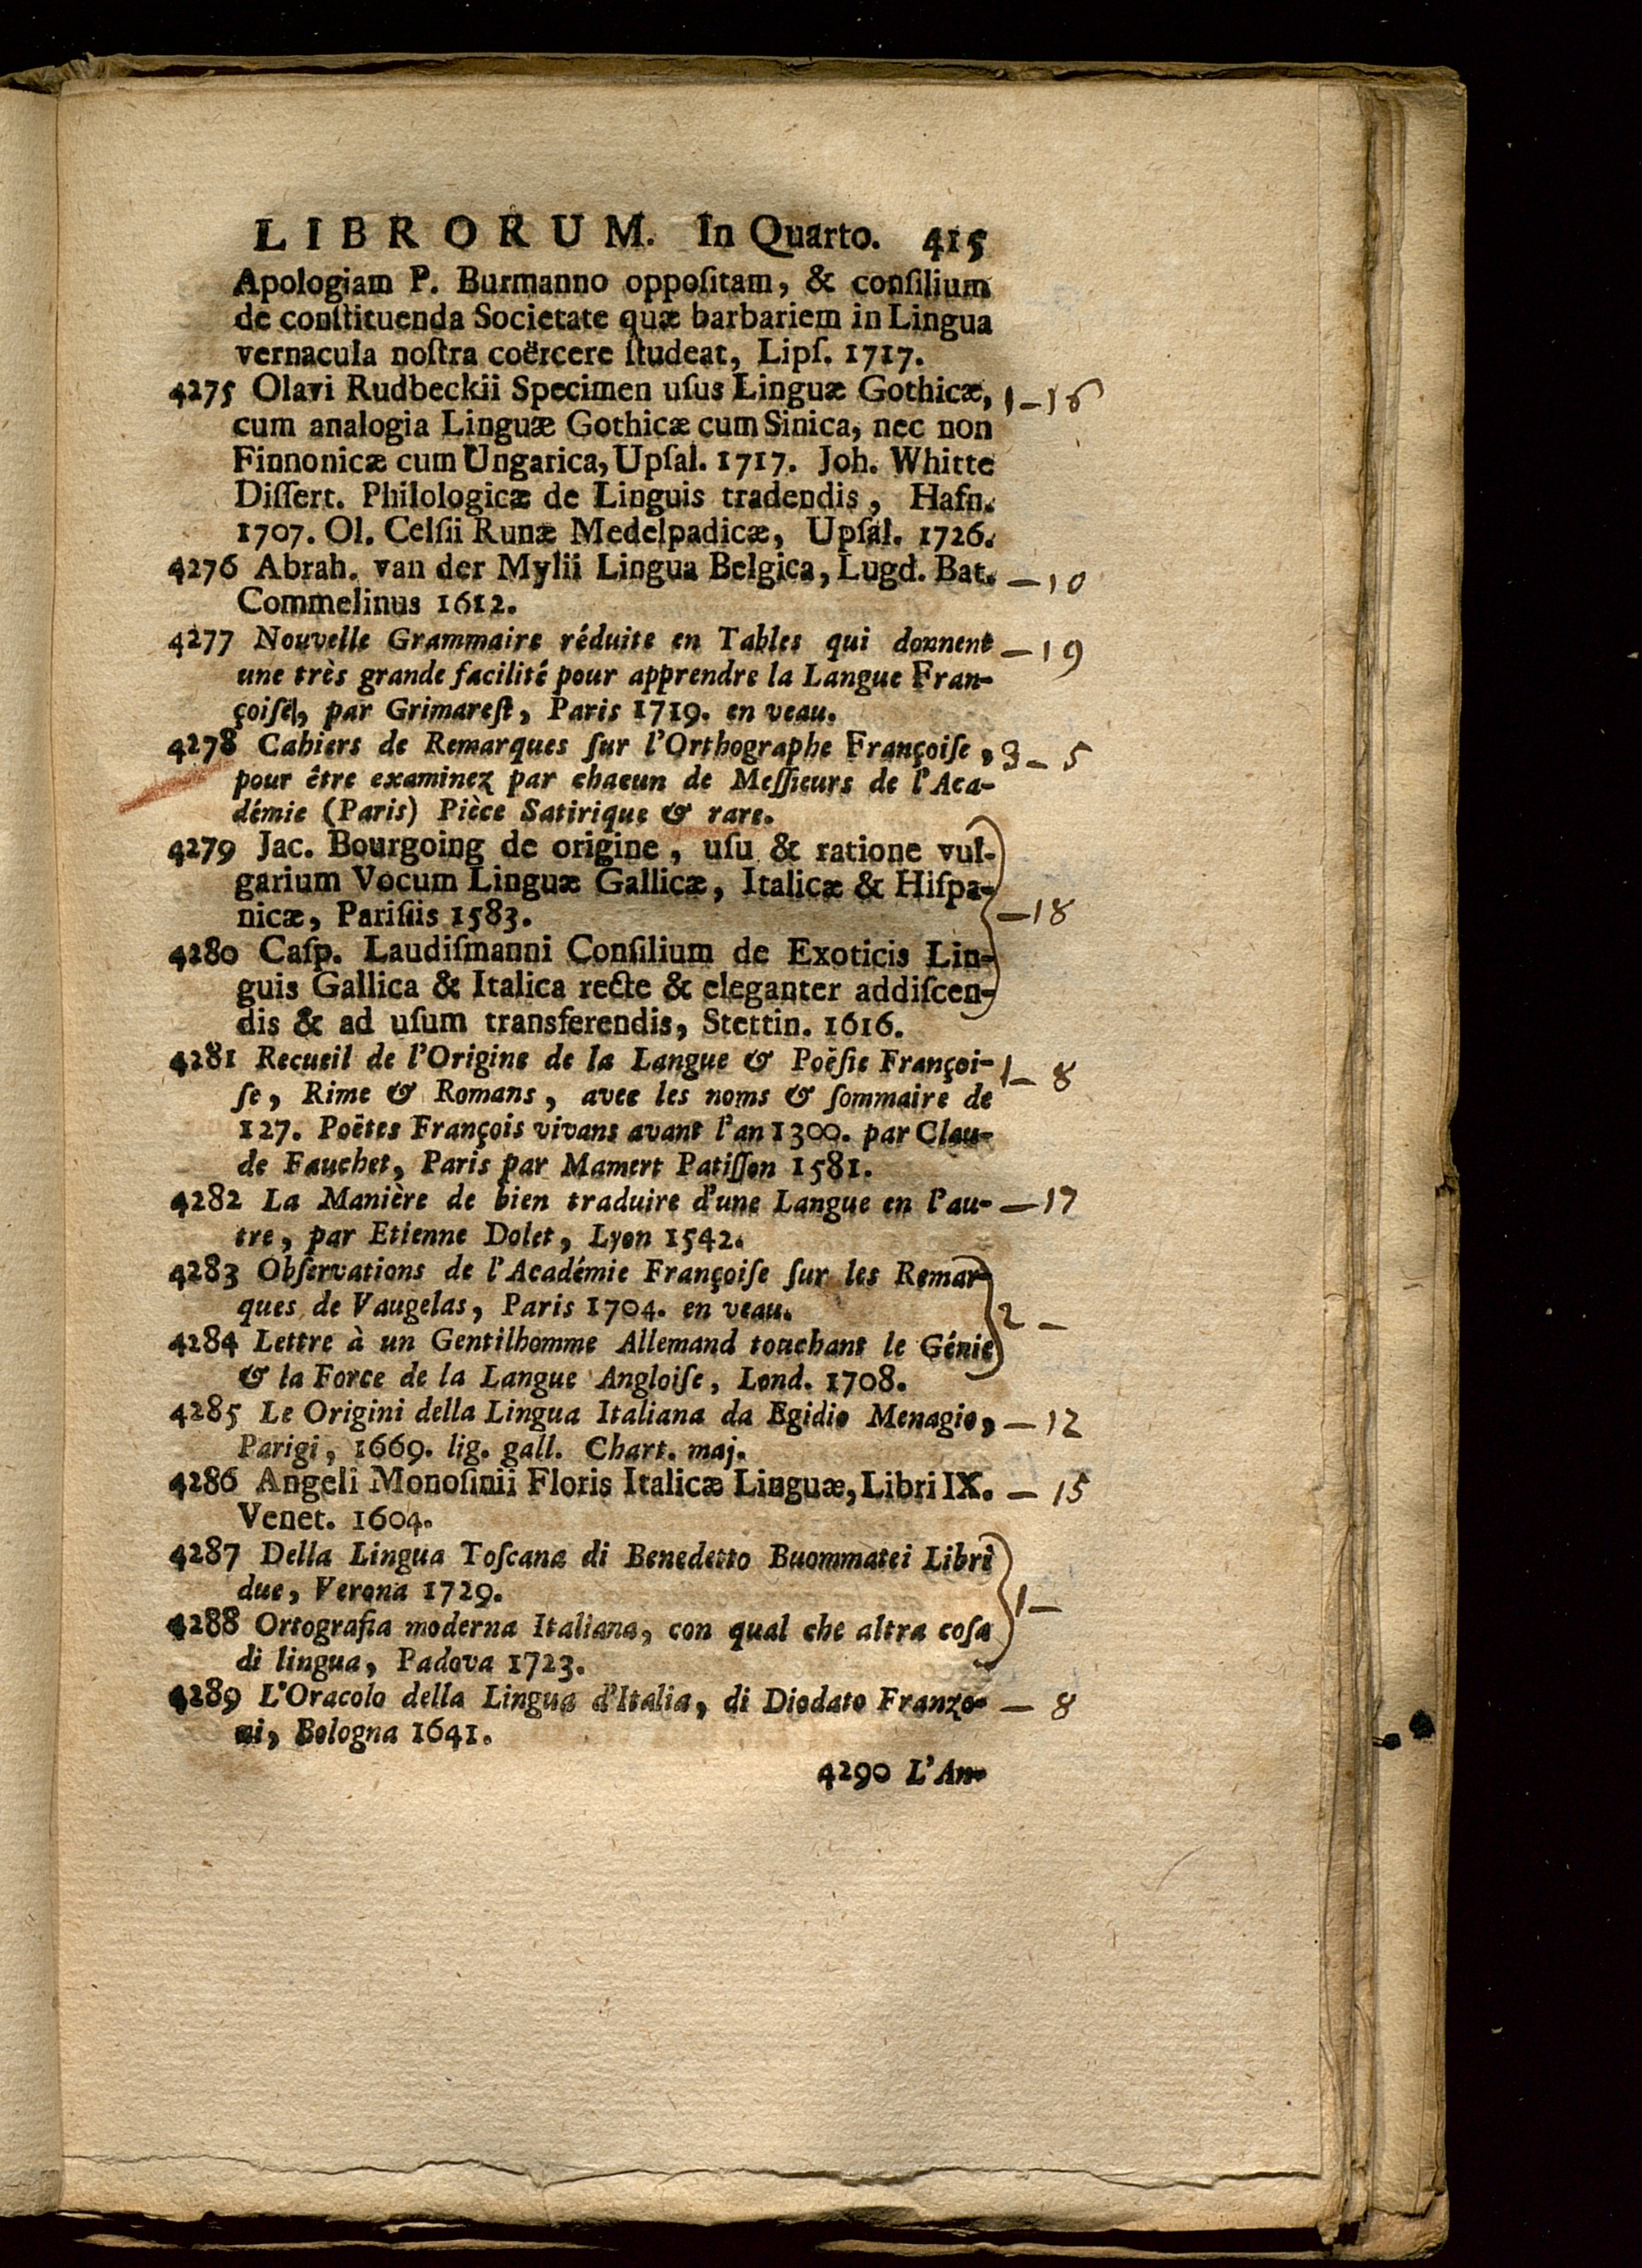 LIBRORUM. In Quarto. 415
Apologiam P. Burmanno oppoſitam, & conſilium
de conſtituenda Societate quæ barbariem in Lingua
vernacula noſtra coërcere ſtudeat, Lipſ. 1717.
4275 Olavi Rudbeckii Specimen uſus Linguæ Gothicæ, 1-16
cum analogia Linguæ Gothicæ cum Sinica, nec non
Finnonicæ cum Ungarica, Upſal. 1717. Joh. Whitte
Diſſert. Philologicæ de Linguis tradendis, Hafn.
1707. Ol. Celſii Runæ Medelpadicæ, Upſal. 1726.
4276 Abrah. van der Mylii Lingua Belgica, Lugd. Bat. —10
Commelinus 1612.
4277 Nouvelle Grammaire réduite en Tables qui donnent —19
une très grande facilité pour apprendre la Langue Fran-
çoiſe, par Grimareſt, Paris 1719. en veau.
4278 Cahiers de Remarques ſur l'Orthographe Françoiſe, 3-5
pour être examinez par chacun de Meſſieurs de l'Aca-
démie (Paris) Pièce Satirique & rare.
4279 Jac. Bourgoing de origine, uſu & ratione vul-
garium Vocum Linguæ Gallicæ, Italicæ & Hiſpa-
nicæ, Pariſiis 1583. —18
4280 Caſp. Laudiſmanni Conſilium de Exoticis Lin-
guis Gallica & Italica recte & eleganter addiſcen-
dis & ad uſum transferendis, Stettin. 1616.
4281 Recueil de l'Origine de la Langue & Poëſie Françoi- 1-8
ſe, Rime & Romans, avec les noms & ſommaire de
127. Poëtes François vivans avant l'an 1300. par Clau-
de Fauchet, Paris par Mamert Patiſſon 1581.
4282 La Manière de bien traduire d'une Langue en l'au- —17
tre, par Etienne Dolet, Lyon 1542.
4283 Obſervations de l'Académie Françoiſe ſur les Remar-
ques de Vaugelas, Paris 1704. en veau. 2 -
4284 Lettre à un Gentilhomme Allemand touchant le Génie
& la Force de la Langue Angloiſe, Lond. 1708.
4285 Le Origini della Lingua Italiana da Egidio Menagio, —12
Parigi, 1669. lig. gall. Chart. maj.
4286 Angeli Monoſinii Floris Italicæ Linguæ, Libri IX. — 15
Venet. 1604.
4287 Della Lingua Toſcana di Benedetto Buommatei Libri
due, Verona 1729. 1-
4288 Ortografia moderna Italiana, con qual che altra coſa
di lingua, Padova 1723.
4289 L'Oracolo della Lingua d'Italia, di Diodato Franzo- — 8
ni, Bologna 1641.
4290 L'An-